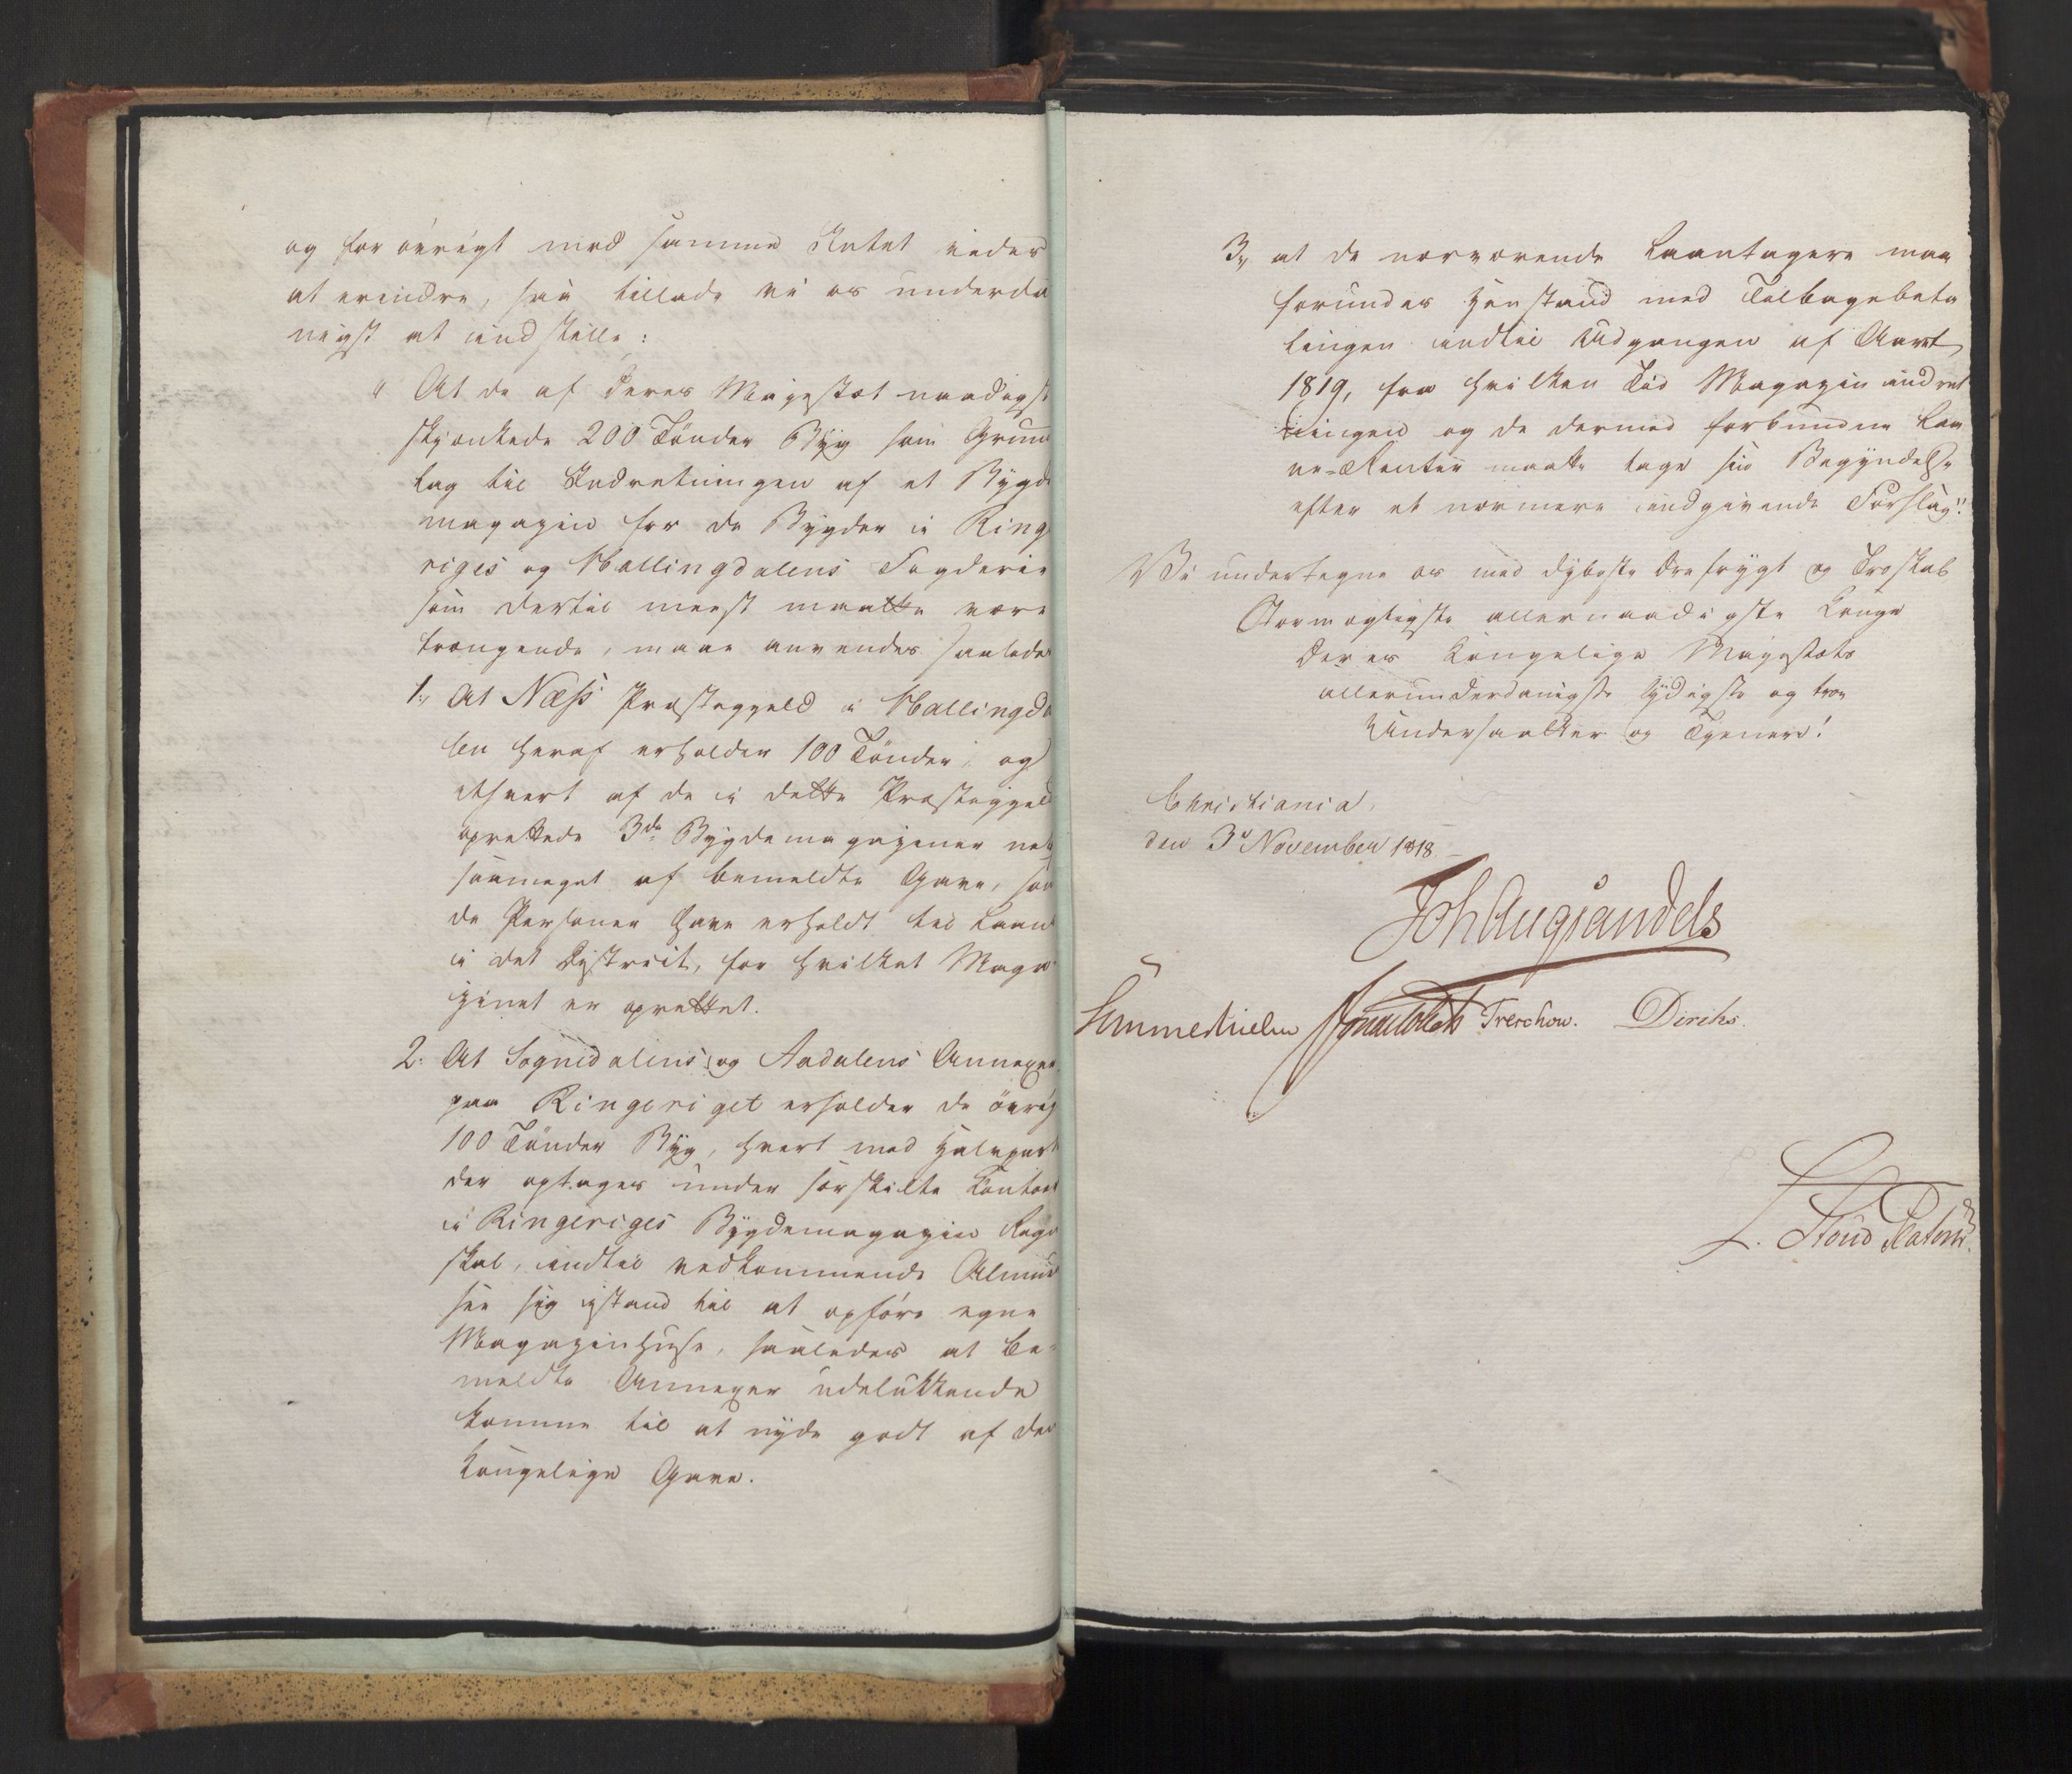 og for övrigt med samme Intet vides
at erindre, saa tillade vi os underda
nigst at indstille:
" At de af Deres Majestæt naadigst
skjænkede 200 Tönder Byg som Grund
lag til Indretningen af et Bygde
magazin for de Bygder i Ring
riges og Hallingdalens Fogderie
som dertil meest maatte være
trængende, maae anvendes saaledes
1., At Næss Præstegjeld i Hallingda
len heraf erholder 100 Tönder, og
ethvert af de i dette Præstegjeld
oprettede 3de Bygdemagaziner net
saameget af bemeldte Gave, som
de Personer have erholdt til Laan
i det District, for hvilket Maga
zinet er oprettet.
2. At Sognedalens og Aadalens Annexer
paa Ringeriget erholder de övrige
100 Tönder Byg, hvert med Halvpart
der optages under særskilte Conto
i Ringeriges Bygdemagazin Regn
skab, indtil vedkommende Almue
see sig istand til at opföre egne
Magazinhuse, saaledes at be-
meldte Annexer udelukkende
komme til at nyde godt af den
Kongelige Gave.
3, at de nærværende Laantagere maa
forundes Henstand med Tilbagebeta
lingen indtil Udgangen af Aaret
1819, fra hvilken Tid Magazinindret
ningen og de dermed forbundne Laa
ne-Renter maatte tage sin Begyndelse
efter et nærmere indgivende Forslag".
Vi undertegne os med dybeste Ærefrygt og Troskab
Stormægtigste allernaadigste Konge
Deres Kongelige Majestæts
allerunderdanigste lydigste og troe
Undersaatter og Tjenere!
Christiania,
den 3d November 1818
Joh Aug Sandels
Sommerhielm Treschow. Diriks.
L. Stoud Platou